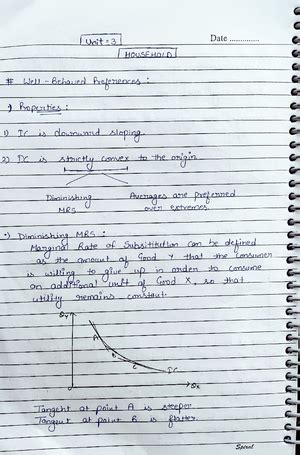 Unit = 3
Date ..............
HOUSEHOLD
# Well-Behaved Preferences :
•) Properties :
1) IC is downward sloping.
2) IC is strictly convex to the origin
Diminishing MRS
Averages are preferred over extremes.
•) Diminishing MRS :
Marginal Rate of Subsititution can be defined
as the amount of Good Y that the consumer
is willing to give up in order to consume
an additional unit of Good X, so that
utility remains constant.
QY
A
B
C
IC
QX
Tangent at point A is steeper
Tangent at point B is flatter.
Spiral